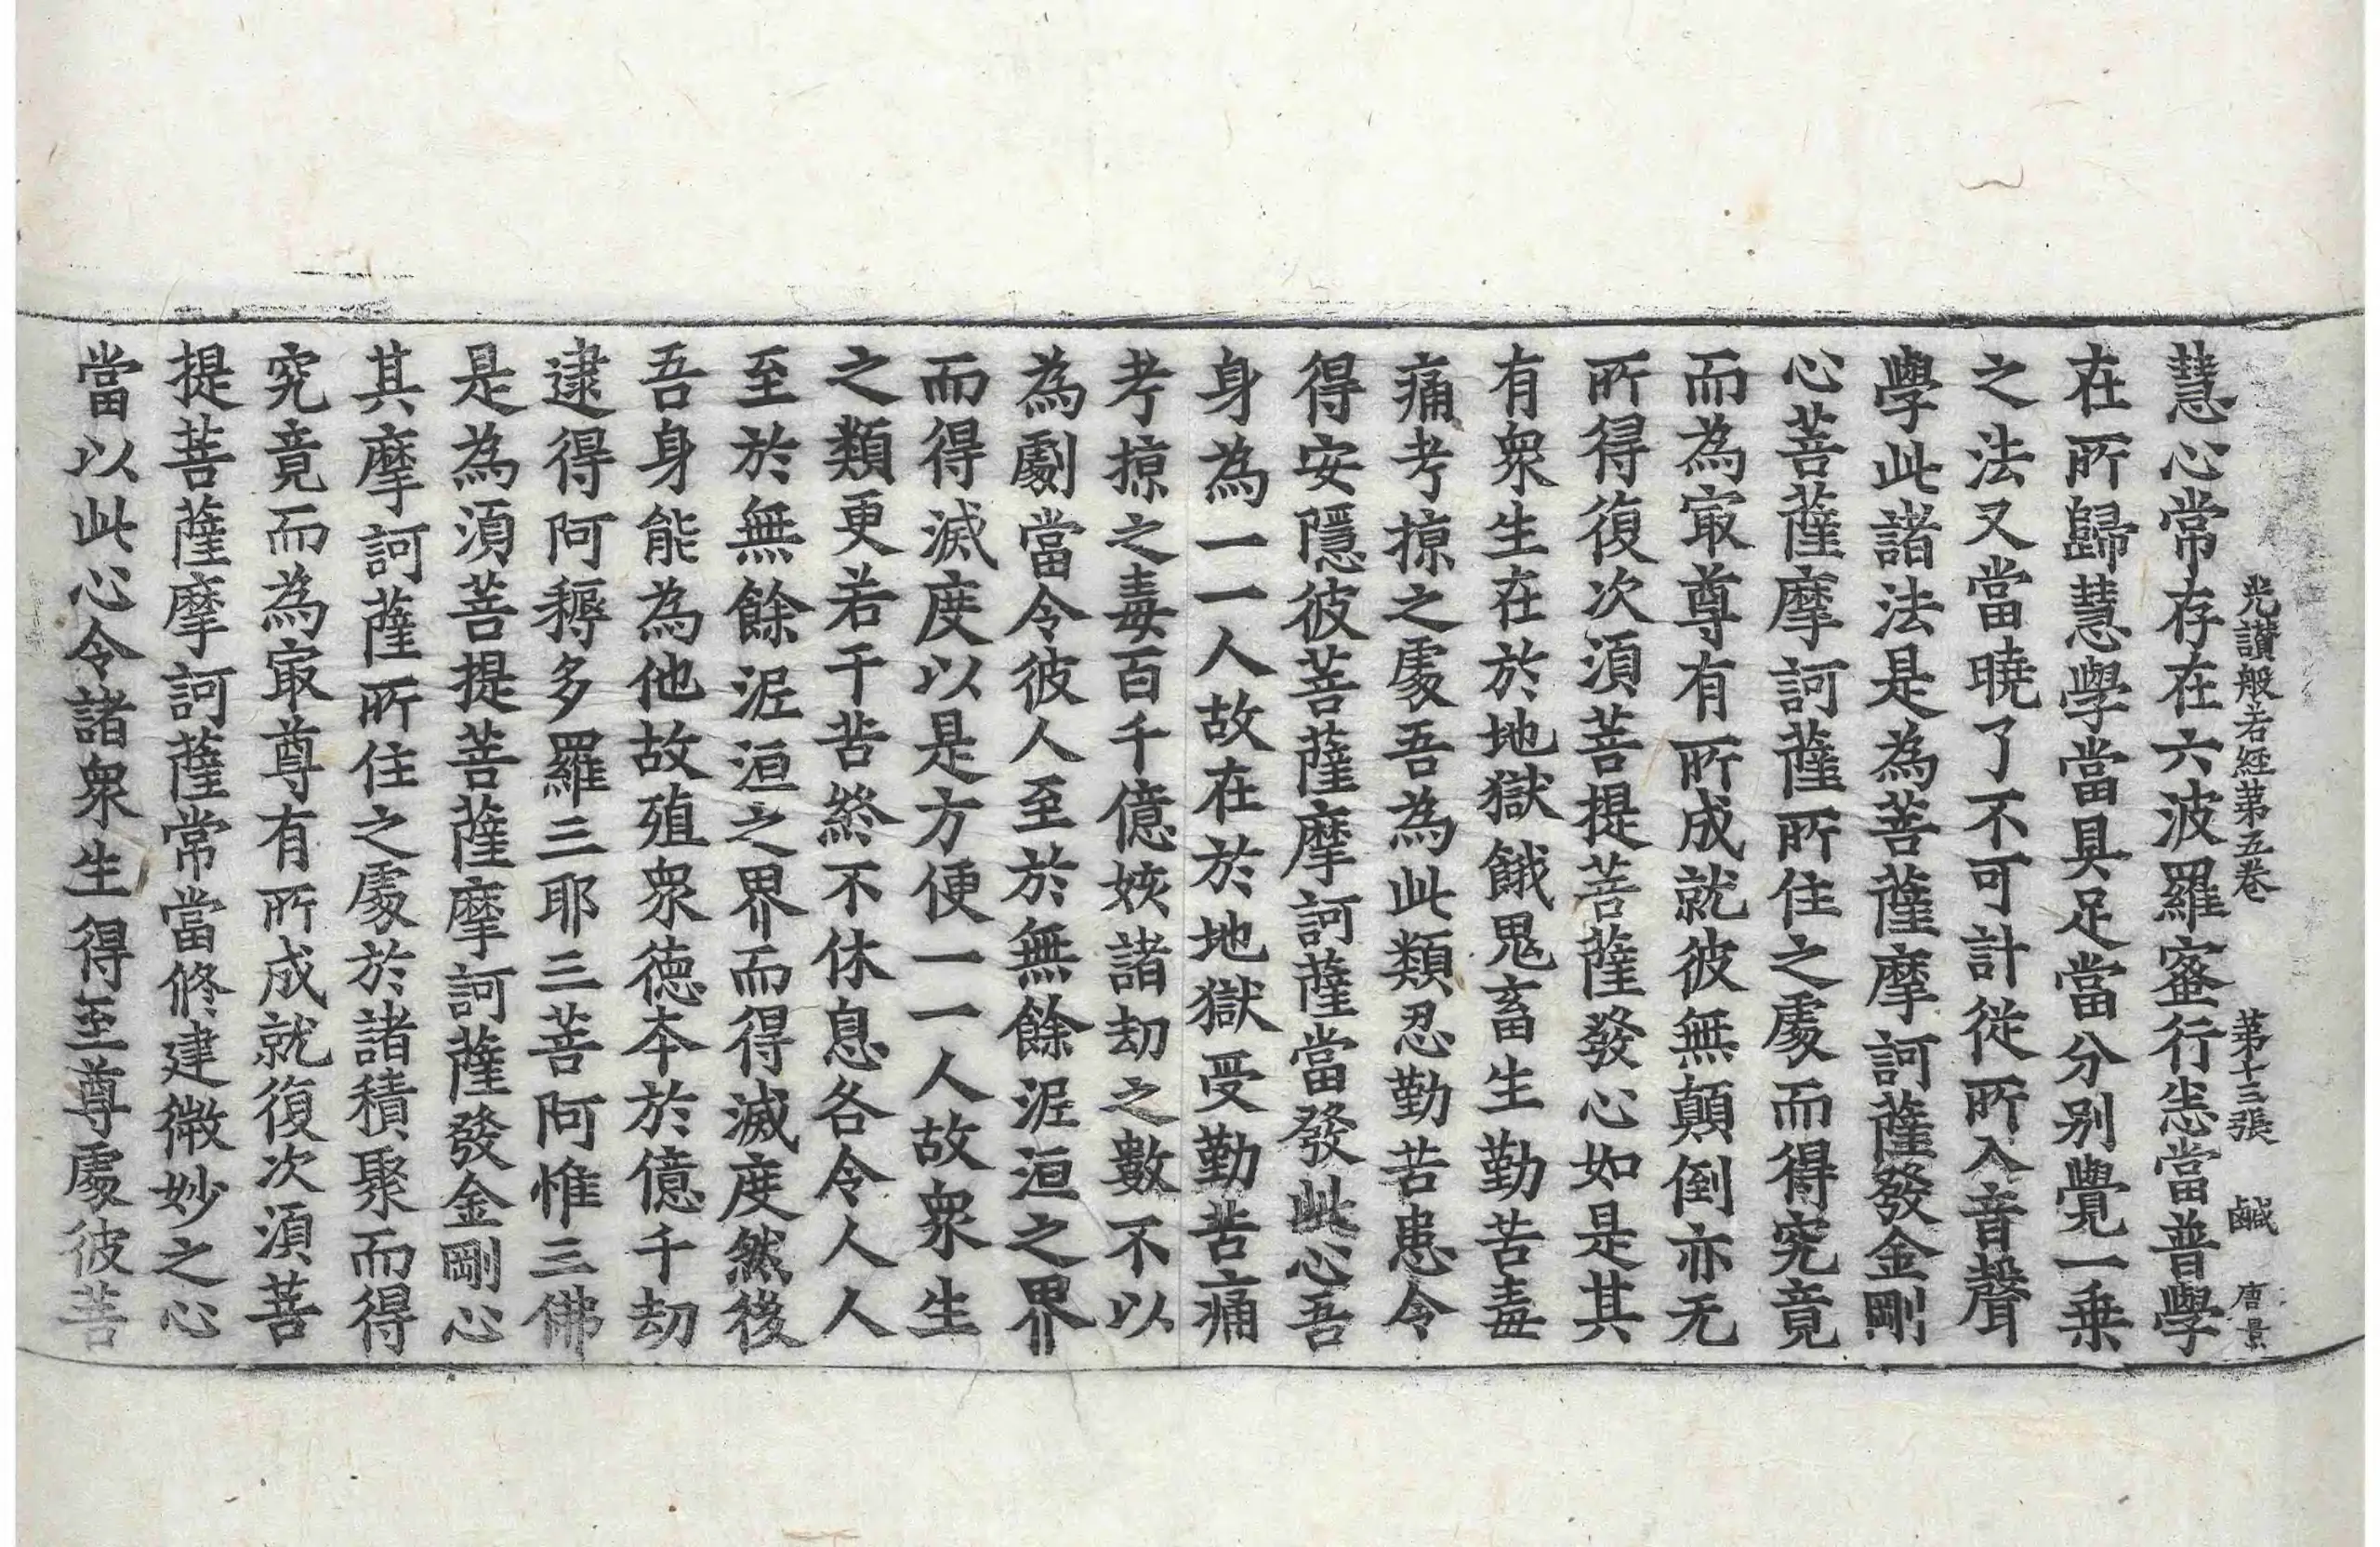 光讃般若經第五卷　第十三張　鹹　唐景
慧心常存在六波羅蜜行恙當普學
在所歸慧學當具足當分别覺一乗
之法又當曉了不可計從所入音聲
學此諸法是為菩薩摩訶薩發金剛
心菩薩摩訶薩所住之處而得究竟
而為㝡尊有所成就彼無顛倒亦无
所得復次須菩提菩薩發心如是其
有衆生在於地獄餓鬼畜生勤苦毒
痛考掠之處吾為此類忍勤苦患令
得安隱彼菩薩摩訶薩當發此心吾
身為一一人故在於地獄受勤苦痛
考掠之毒百千億姟諸劫之數不以
為劇當令彼人至於無餘泥洹之界
而得滅度以是方便一一人故衆生
之類更若干苦終不休息各令人人
至於無餘泥洹之界而得滅度然後
吾身能為他故殖衆德本於億千劫
逮得阿耨多羅三耶三菩阿惟三佛
是為須菩提菩薩摩訶薩發金剛心
其摩訶薩所住之處於諸積聚而得
究竟而為㝡尊有所成就復次須菩
提菩薩摩訶薩常當修建微妙之心
當以此心令諸衆生得至尊處彼菩